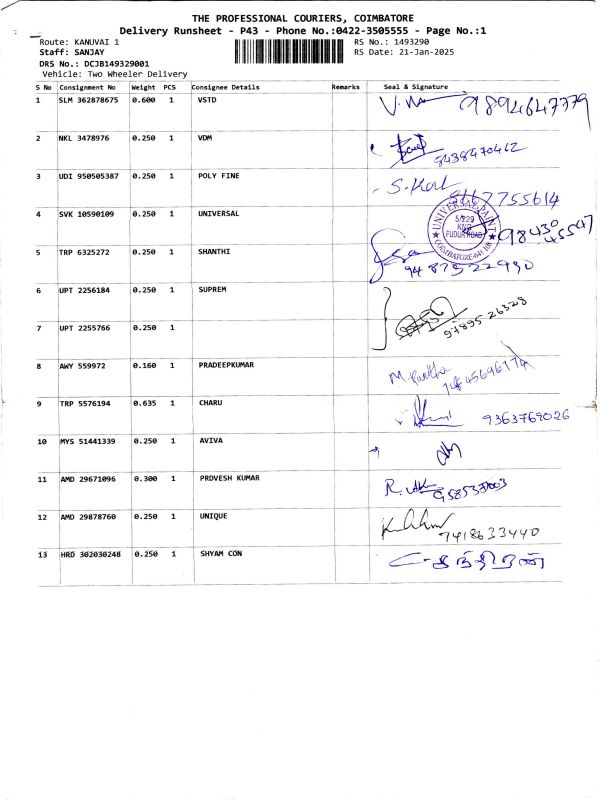 THE PROFESSIONAL COURIERS, COIMBATORE
Delivery Runsheet - P43 - Phone No.:0422-3505555 - Page No.:1
Route: KANUVAI 1 RS No.: 1493290
Staff: SANJAY RS Date: 21-Jan-2025
DRS No.: DCJB149329001
Vehicle: Two Wheeler Delivery
S No Consignment No Weight PCS Consignee Details Remarks Seal & Signature
1 SLM 362878675 0.600 1 VSTD 9894647779
2 NKL 3478976 0.250 1 VDM 8438470462
3 UDI 950505387 0.250 1 POLY FINE 8117755614
4 SVK 10590109 0.250 1 UNIVERSAL 98430 45547
5 TRP 6325272 0.250 1 SHANTHI 94 875 22990
6 UPT 2256184 0.250 1 SUPREM 97895 26328
7 UPT 2255766 0.250 1
8 AWY 559972 0.160 1 PRADEEPKUMAR
9 TRP 5576194 0.635 1 CHARU 9363769026
10 MYS 51441339 0.250 1 AVIVA
11 AMD 29671096 0.300 1 PRDVESH KUMAR
12 AMD 29878760 0.250 1 UNIQUE 7418633440
13 HRD 302030248 0.250 1 SHYAM CON